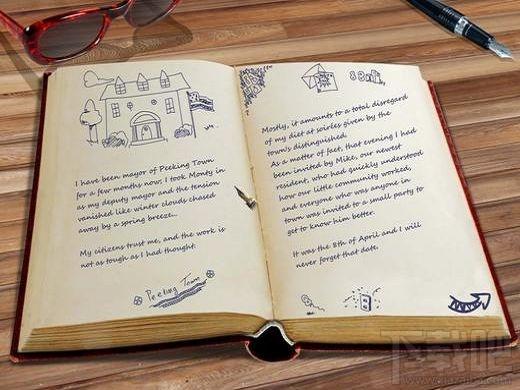 I have been mayor of Peeking Town
for a few months now; I took Monty in
as my deputy mayor and the tension
vanished like winter clouds chased
away by a spring breeze...
My citizens trust me, and the work is
not as tough as I had thought.
Peeking Town
8 April
Mostly, it amounts to a total disregard
of my diet at soirées given by the
town's distinguished.
As a matter of fact, that evening I had
been invited by Mike, our newest
resident, who had quickly understood
how our little community worked,
and everyone who was anyone in
town was invited to a small party to
get to know him better.
It was the 8th of April and I will
never forget that date.
下载吧